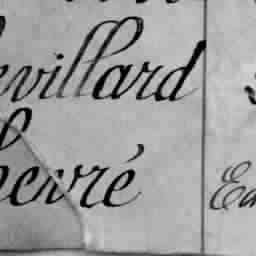 evillard
hevré
Ed